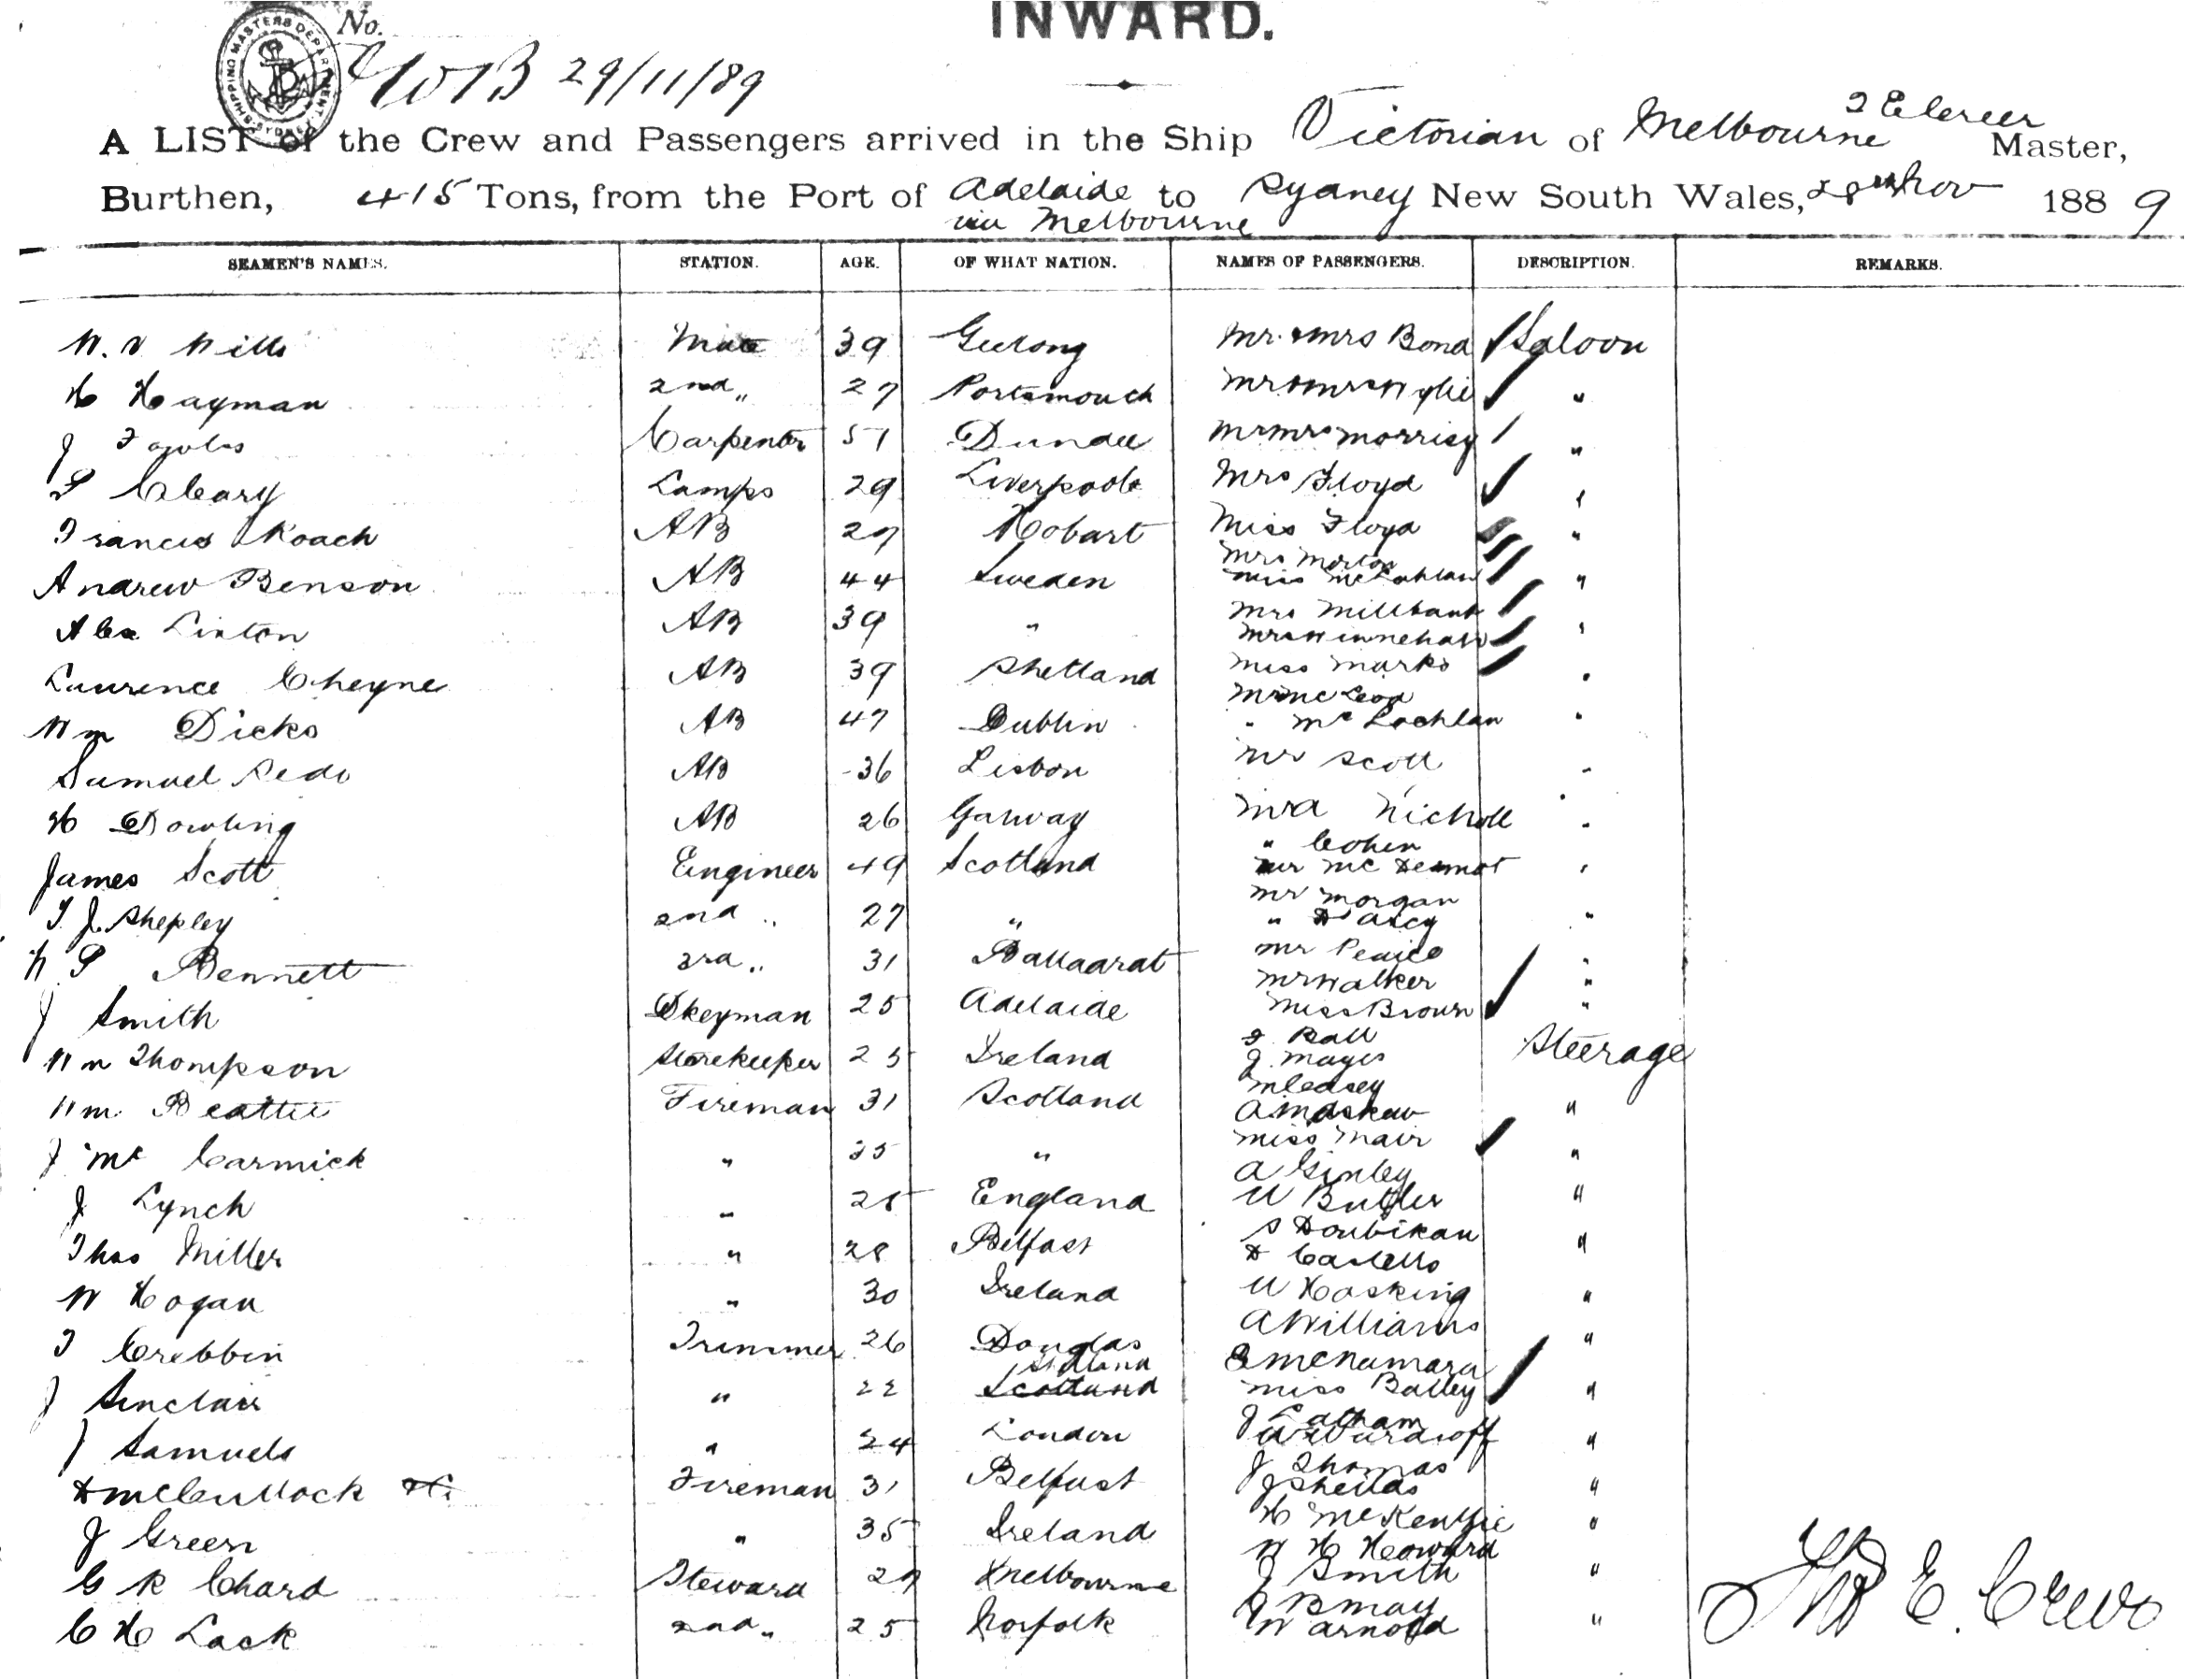 No.
INWARD.
29/11/89
A LIST of the Crew and Passengers arrived in the Ship Victorian of Melbourne Master,
Burthen, 415 Tons, from the Port of Adelaide to Sydney New South Wales, 28th Nov 1889
via Melbourne
SEAMEN'S NAMES. STATION. AGE. OF WHAT NATION. NAMES OF PASSENGERS. DESCRIPTION. REMARKS.
Mate 39 Geelong Mr & Mrs Bond Saloon
H Hayman 2nd " 27 Portsmouth Mr & Mrs Wylie "
J Carpenter 51 Dundee Mr Mrs Morrisy "
P Cleary Lamps 29 Liverpool Mrs Floyd "
Francis Roach AB 27 Hobart Miss Floyd "
Mrs Morton
Andrew Benson AB 44 Sweden Miss McLachlan "
Mrs Millbank
Alex Linton AB 39 " Mrs "
Laurence Cheyne AB 39 Shetland Miss Marks "
Mr McLeod
Wm Dicks AB 47 Dublin " McLachlan "
Samuel AB 36 Lisbon Mr Scott "
H Dowling AB 26 Galway Nicholl "
" Cohen
James Scott Engineer 49 Scotland Mr McDermot "
Mr Morgan
T. J. Shepley 2nd " 27 " " D'Arcy "
W P Bennett 3rd " 31 Ballaarat Mr "
Mr Walker "
J Smith Dkeyman 25 Adelaide Miss Brown "
Ball
Wm Thompson Storekeeper 25 Ireland J. Mayes Steerage
Wm Beattie Fireman 31 Scotland A Maskew "
J McCarmick " 35 " Miss Mair "
A Ginley
J Lynch " 25 England W Butler "
Thos Miller " 28 Belfast D Castello "
W Hogan " 30 Ireland W Hosking "
A Williams
T Crebbin Trimmer 26 Douglas McNamara "
Shetland
J Sinclair " 22 Scotland Miss Balley "
J Latham
J Samuels " 24 London "
J Thomas
D McCullock Fireman 31 Belfast J Shellds "
H McKenzie
J Green " 35 Ireland W H Howard "
G R Chard Steward 29 Melbourne J Smith "
J B May
C H Lack 2nd " 25 Norfolk W Arnold "